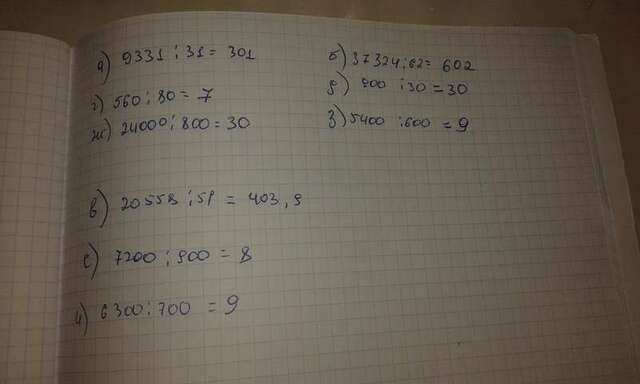 а) 9331 : 31 = 301
б) 37324 : 62 = 602
г) 560 : 80 = 7
д) 900 : 30 = 30
ж) 24000 : 800 = 30
з) 5400 : 600 = 9
в) 20558 : 51 = 403,9
е) 7200 : 900 = 8
и) 6300 : 700 = 9